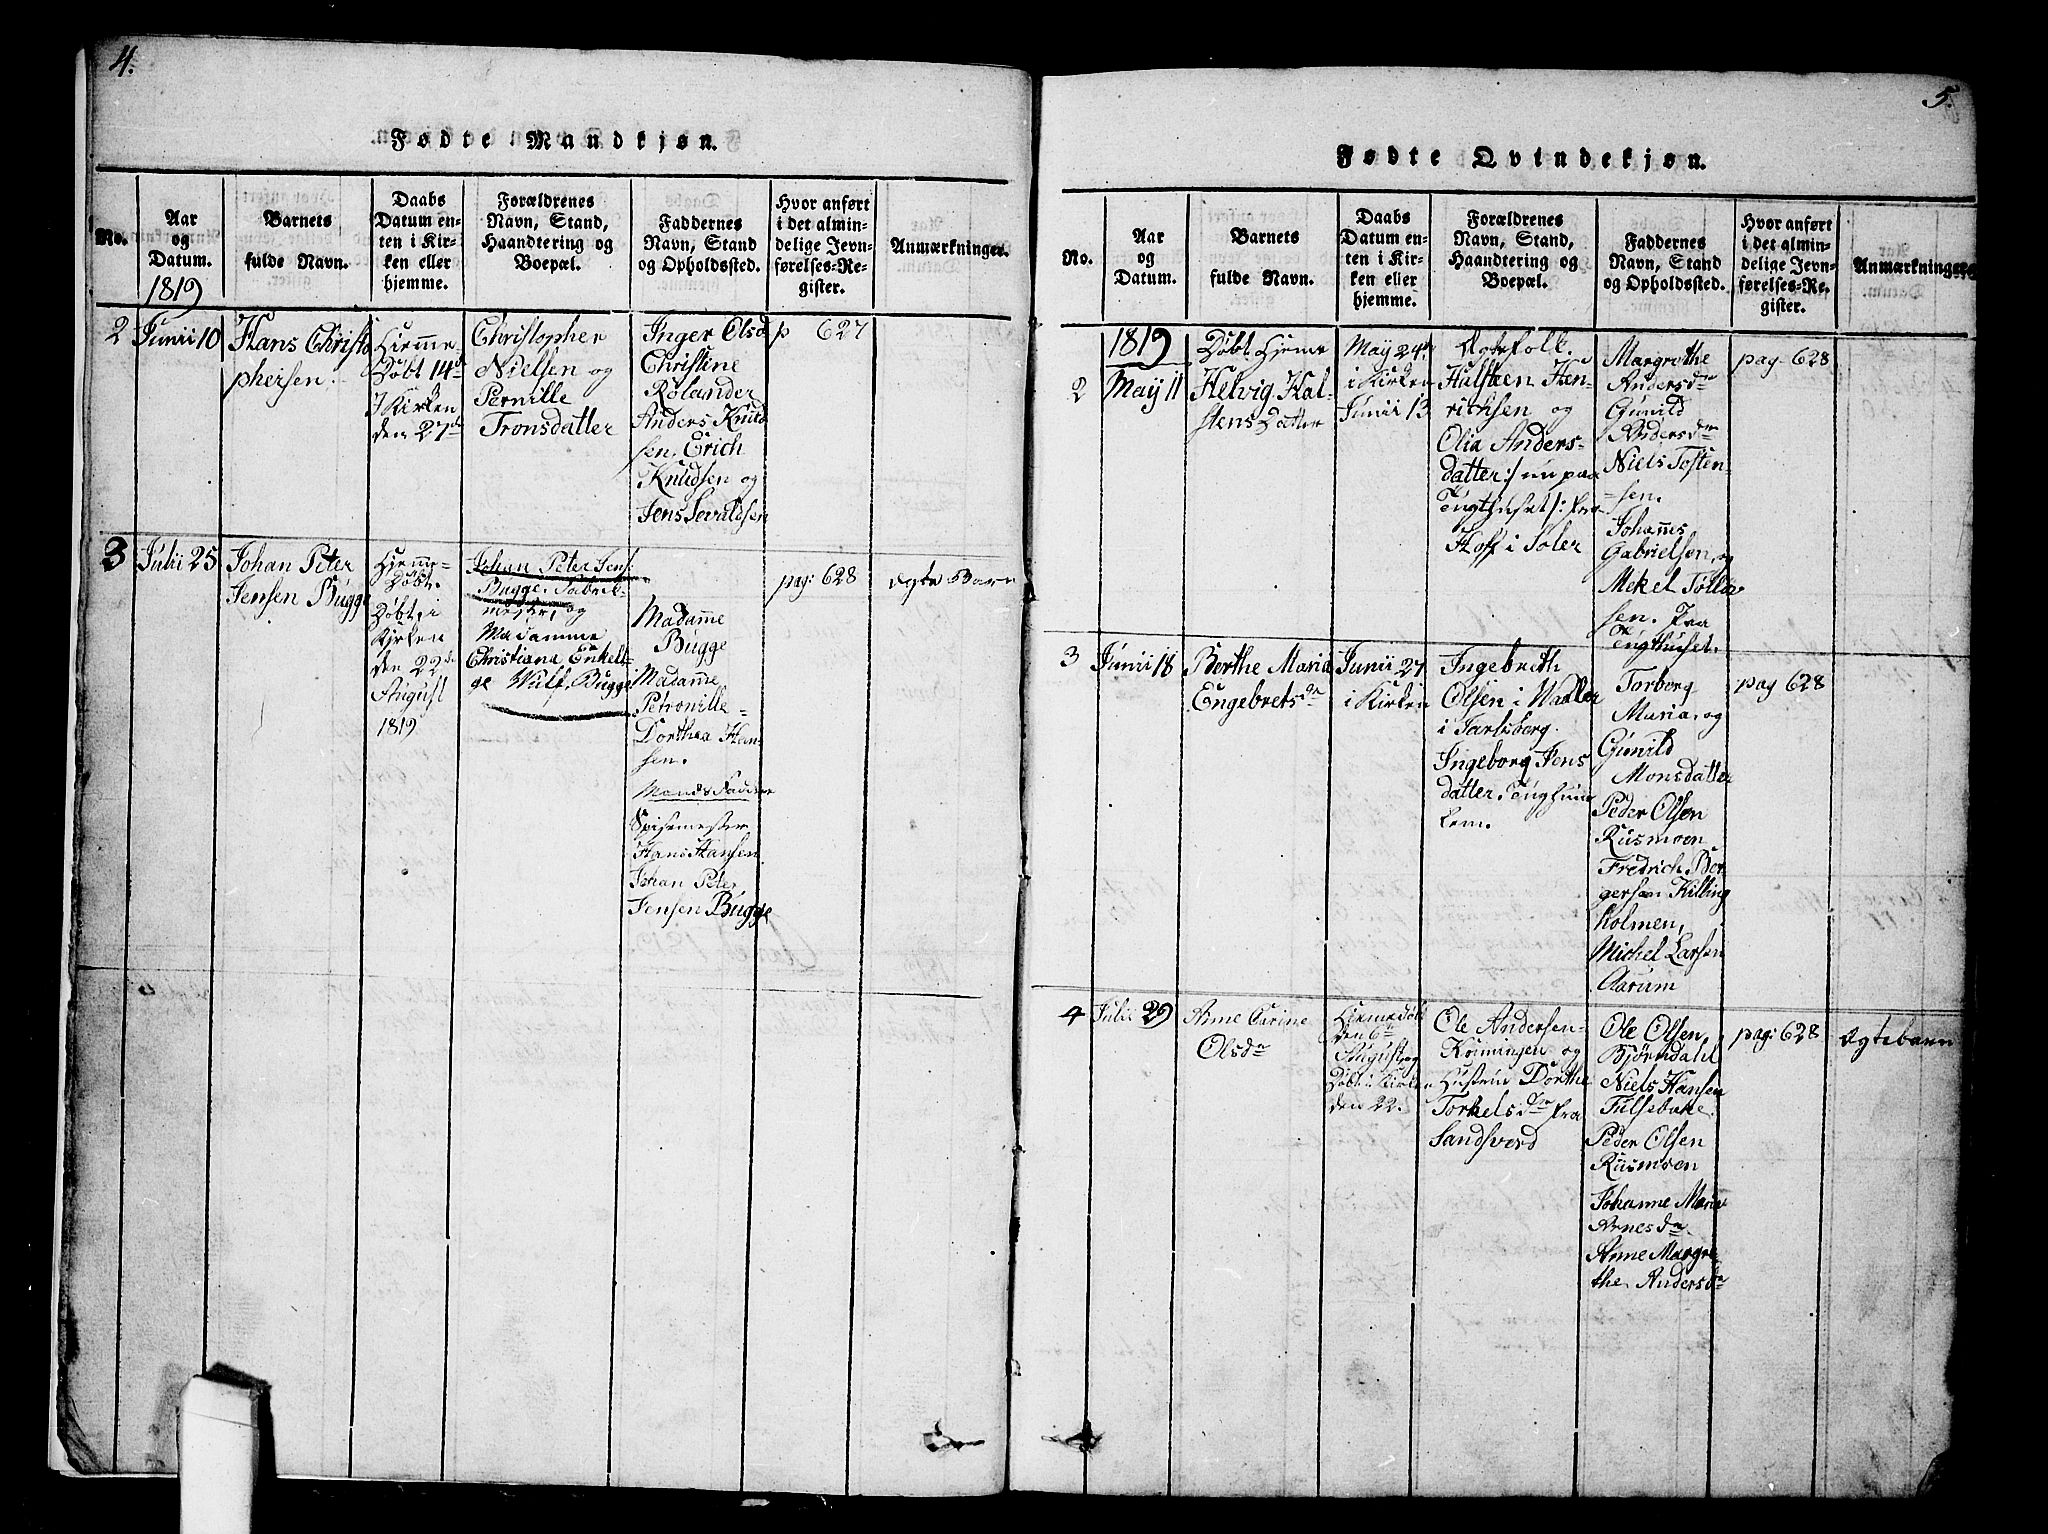 4.
Fødte Mandkjøn.
No.
Aar
og
Datum.
1819
Barnets
fulde Navn.
Daabs
Datum en-
ten i Kir-
ken eller
hjemme.
Forældrenes
Navn, Stand,
Haandtering og
Boepæl.
Faddernes
Navn, Stand
og Opholdssted.
Hvor anført
i det almin-
delige Jevn-
førelses-Re-
gister.
Anmærkninger.
2
Junii 10
Hans Christo
phersen.
Hiemme
Døbt 14de
I Kirken
den 27de
Christopher
Nielsen og
Pernille
Tronsdatter
Inger Olsd
Christine
Rolander
Anders Knud
sen, Erich
Knudsen og
Jens Sevaldsen
p 627
3
Julii 25
Johan Peter
Jensen Bugge
Hjemme
Døbt.
Døbt, i
Kirken
den 22de
August
1819
Johan Peter Jens:
Bugge, Fabrik-
mester, og
Madamme
Christiana Enkelt-
ge Wulf, Bugge
Madamme
Bugge
Madamme
Petronille
Dorthea Han-
sen.
Mands Faddere
Spisemester
Hans Hansen
Johan Peter
Jensen Bugge
pag: 628
Egte Barn
5.
Fødte Qvindekjøn.
No.
Aar
og
Datum.
Barnets
fulde Navn.
Daabs
Datum en-
ten i Kir-
ken eller
hjemme.
Forældrenes
Navn, Stand,
Haandtering og
Boepæl.
Faddernes
Navn, Stand
og Opholdssted.
Hvor anført
i det almin-
delige Jevn-
førelses-Re-
gister.
Anmærkninger
2
1819
May 11
Døbt Hjeme
Helvig Hal-
stens Datter
May 24de
i Kirken
Junii 13
Egtefolk.
Halsteen Hen-
richsen og
Olia Anders-
datter :/ nu paa
Tugthuset /: fra
Hoff i Soler
Margrethe
Andersdr
Gunild
Andersdr
Niels Tosten
sen.
Johannes
Gabrielsen, og
Mekel Tollev
sen. Fra
Tugthuset.
pag. 628
3
Junii 18
Berthe Maria
Engebretsdr
Junii 27
i Kirken
Ingebreth
Olsen i Waaler
i Jarlsberg.
Ingeborg Jens
datter. Tugthuus
lem.
Torborg
Maria, og
Gunild
Monsdatter
Peder Olsen
Rusmoen
Fredrich Bor
gersen Killing
holmen,
Michel Larsen
Aarum
pag 628
4
Julii 29
Anne Carine
Olsdr
Hiemedøbt
den 6te
August, og
Døbt i Kirken
den 22.
Ole Andersen-
og
Hustrue Dorthe
Torkelsdr fra
Sandsverd
Ole Olsen
Bjørndahl
Niels Hansen
Peder Olsen
Rusmoen
Johanne Marie
Arnesdr
Anne Margre
the Andersdr
pag: 628
Egtebarn